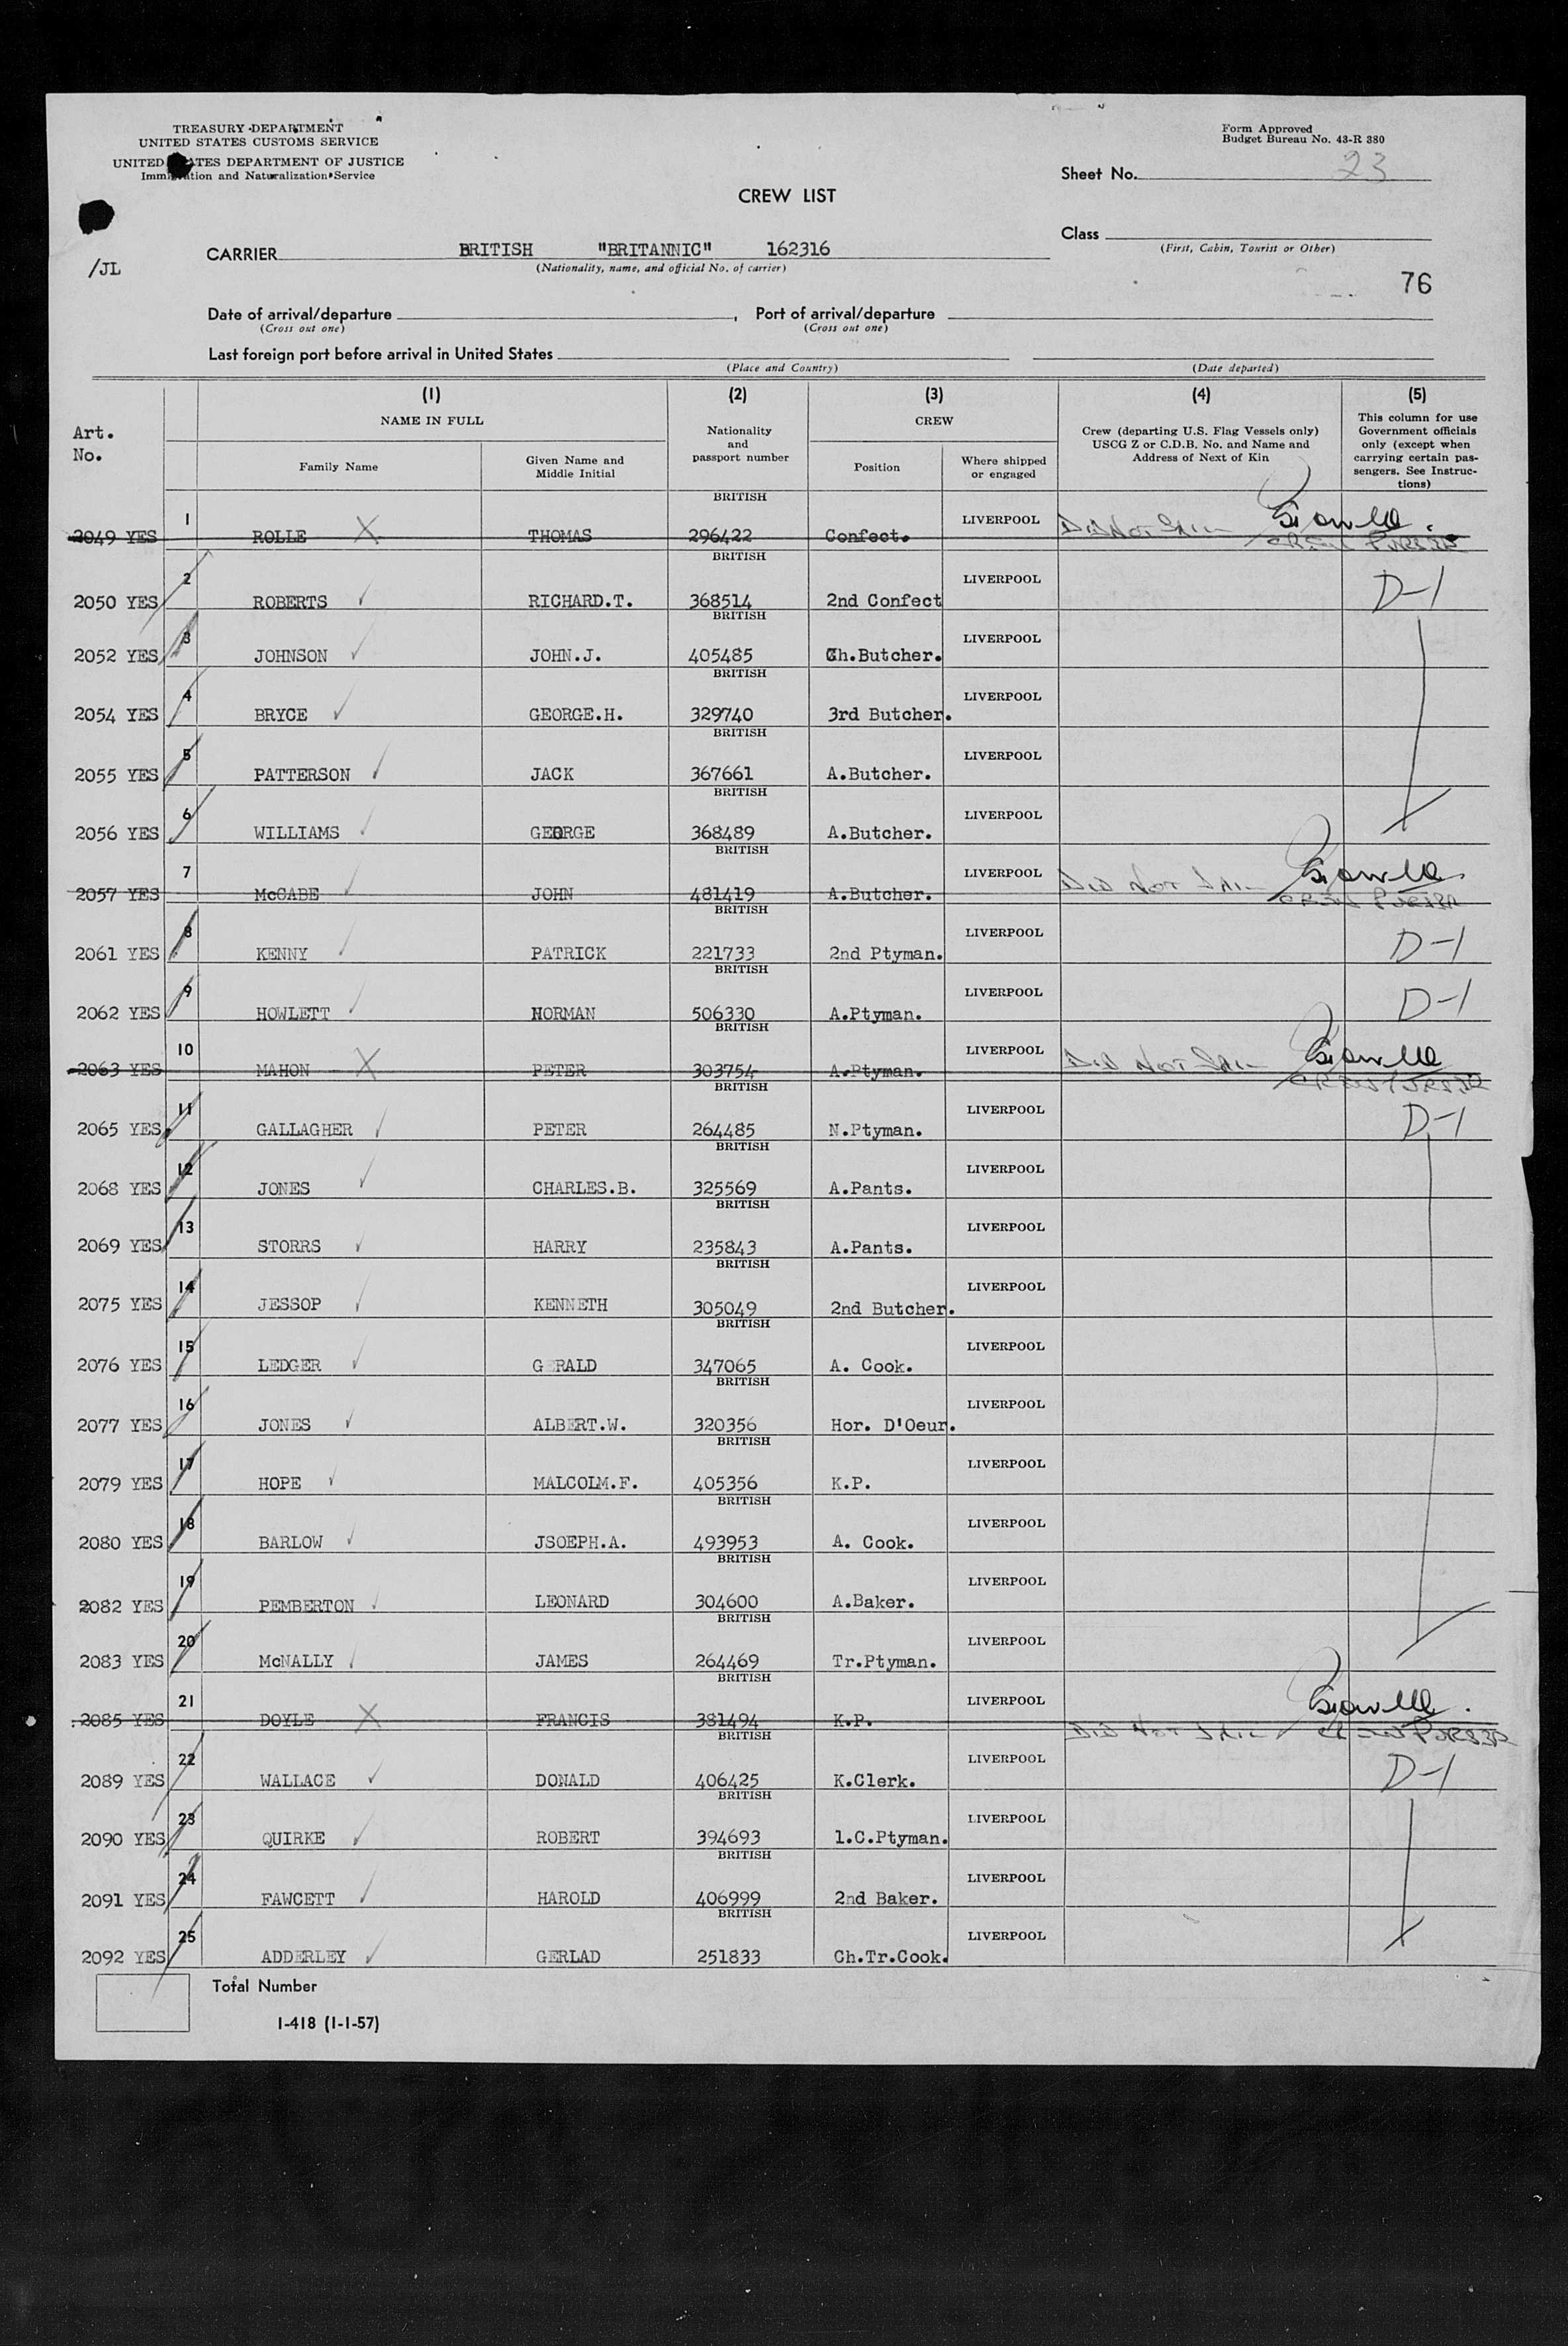 TREASURY DEPARTMENT
UNITED STATES CUSTOMS SERVICE
UNITED STATES DEPARTMENT OF JUSTICE
Immigration and Naturalization Service
Form Approved
Budget Bureau No. 43-R 380
Sheet No. 23
CREW LIST
Class
(First, Cabin, Tourist or Other)
CARRIER BRITISH "BRITANNIC" 162316
(Nationality, name, and official No. of carrier)
/JL
76
Date of arrival/departure , Port of arrival/departure
(Cross out one) (Cross out one)
Last foreign port before arrival in United States
(Place and Country) (Date departed)
Art. No.
(1) NAME IN FULL
Family Name
Given Name and Middle Initial
(2) Nationality and passport number
(3) CREW
Position
Where shipped or engaged
(4) Crew (departing U.S. Flag Vessels only) USCG Z or C.D.B. No. and Name and Address of Next of Kin
(5) This column for use Government officials only (except when carrying certain passengers. See Instructions)
2049 YES 1 ROLLE X THOMAS BRITISH 296422 Confect. LIVERPOOL DID NOT SAIL CREW PURSER
2050 YES 2 ROBERTS RICHARD.T. BRITISH 368514 2nd Confect LIVERPOOL D-1
2052 YES 3 JOHNSON JOHN.J. BRITISH 405485 Ch.Butcher. LIVERPOOL
2054 YES 4 BRYCE GEORGE.H. BRITISH 329740 3rd Butcher. LIVERPOOL
2055 YES 5 PATTERSON JACK BRITISH 367661 A.Butcher. LIVERPOOL
2056 YES 6 WILLIAMS GEORGE BRITISH 368489 A.Butcher. LIVERPOOL
2057 YES 7 McCABE JOHN BRITISH 481419 A.Butcher. LIVERPOOL DID NOT SAIL CREW PURSER
2061 YES 8 KENNY PATRICK BRITISH 221733 2nd Ptyman. LIVERPOOL D-1
2062 YES 9 HOWLETT NORMAN BRITISH 506330 A.Ptyman. LIVERPOOL D-1
2063 YES 10 MAHON X PETER BRITISH 303754 A.Ptyman. LIVERPOOL DID NOT SAIL CREW PURSER
2065 YES 11 GALLAGHER PETER BRITISH 264485 N.Ptyman. LIVERPOOL D-1
2068 YES 12 JONES CHARLES.B. BRITISH 325569 A.Pants. LIVERPOOL
2069 YES 13 STORRS HARRY BRITISH 235843 A.Pants. LIVERPOOL
2075 YES 14 JESSOP KENNETH BRITISH 305049 2nd Butcher. LIVERPOOL
2076 YES 15 LEDGER G RALD BRITISH 347065 A. Cook. LIVERPOOL
2077 YES 16 JONES ALBERT.W. BRITISH 320356 Hor. D'Oeur. LIVERPOOL
2079 YES 17 HOPE MALCOLM.F. BRITISH 405356 K.P. LIVERPOOL
2080 YES 18 BARLOW JSOEPH.A. BRITISH 493953 A. Cook. LIVERPOOL
2082 YES 19 PEMBERTON LEONARD BRITISH 304600 A.Baker. LIVERPOOL
2083 YES 20 McNALLY JAMES BRITISH 264469 Tr.Ptyman. LIVERPOOL
2085 YES 21 DOYLE X FRANCIS BRITISH 381494 K.P. LIVERPOOL DID NOT SAIL CREW PURSER
2089 YES 22 WALLACE DONALD BRITISH 406425 K.Clerk. LIVERPOOL D-1
2090 YES 23 QUIRKE ROBERT BRITISH 394693 1.C.Ptyman. LIVERPOOL
2091 YES 24 FAWCETT HAROLD BRITISH 406999 2nd Baker. LIVERPOOL
2092 YES 25 ADDERLEY GERLAD BRITISH 251833 Ch.Tr.Cook. LIVERPOOL
Total Number
I-418 (1-1-57)